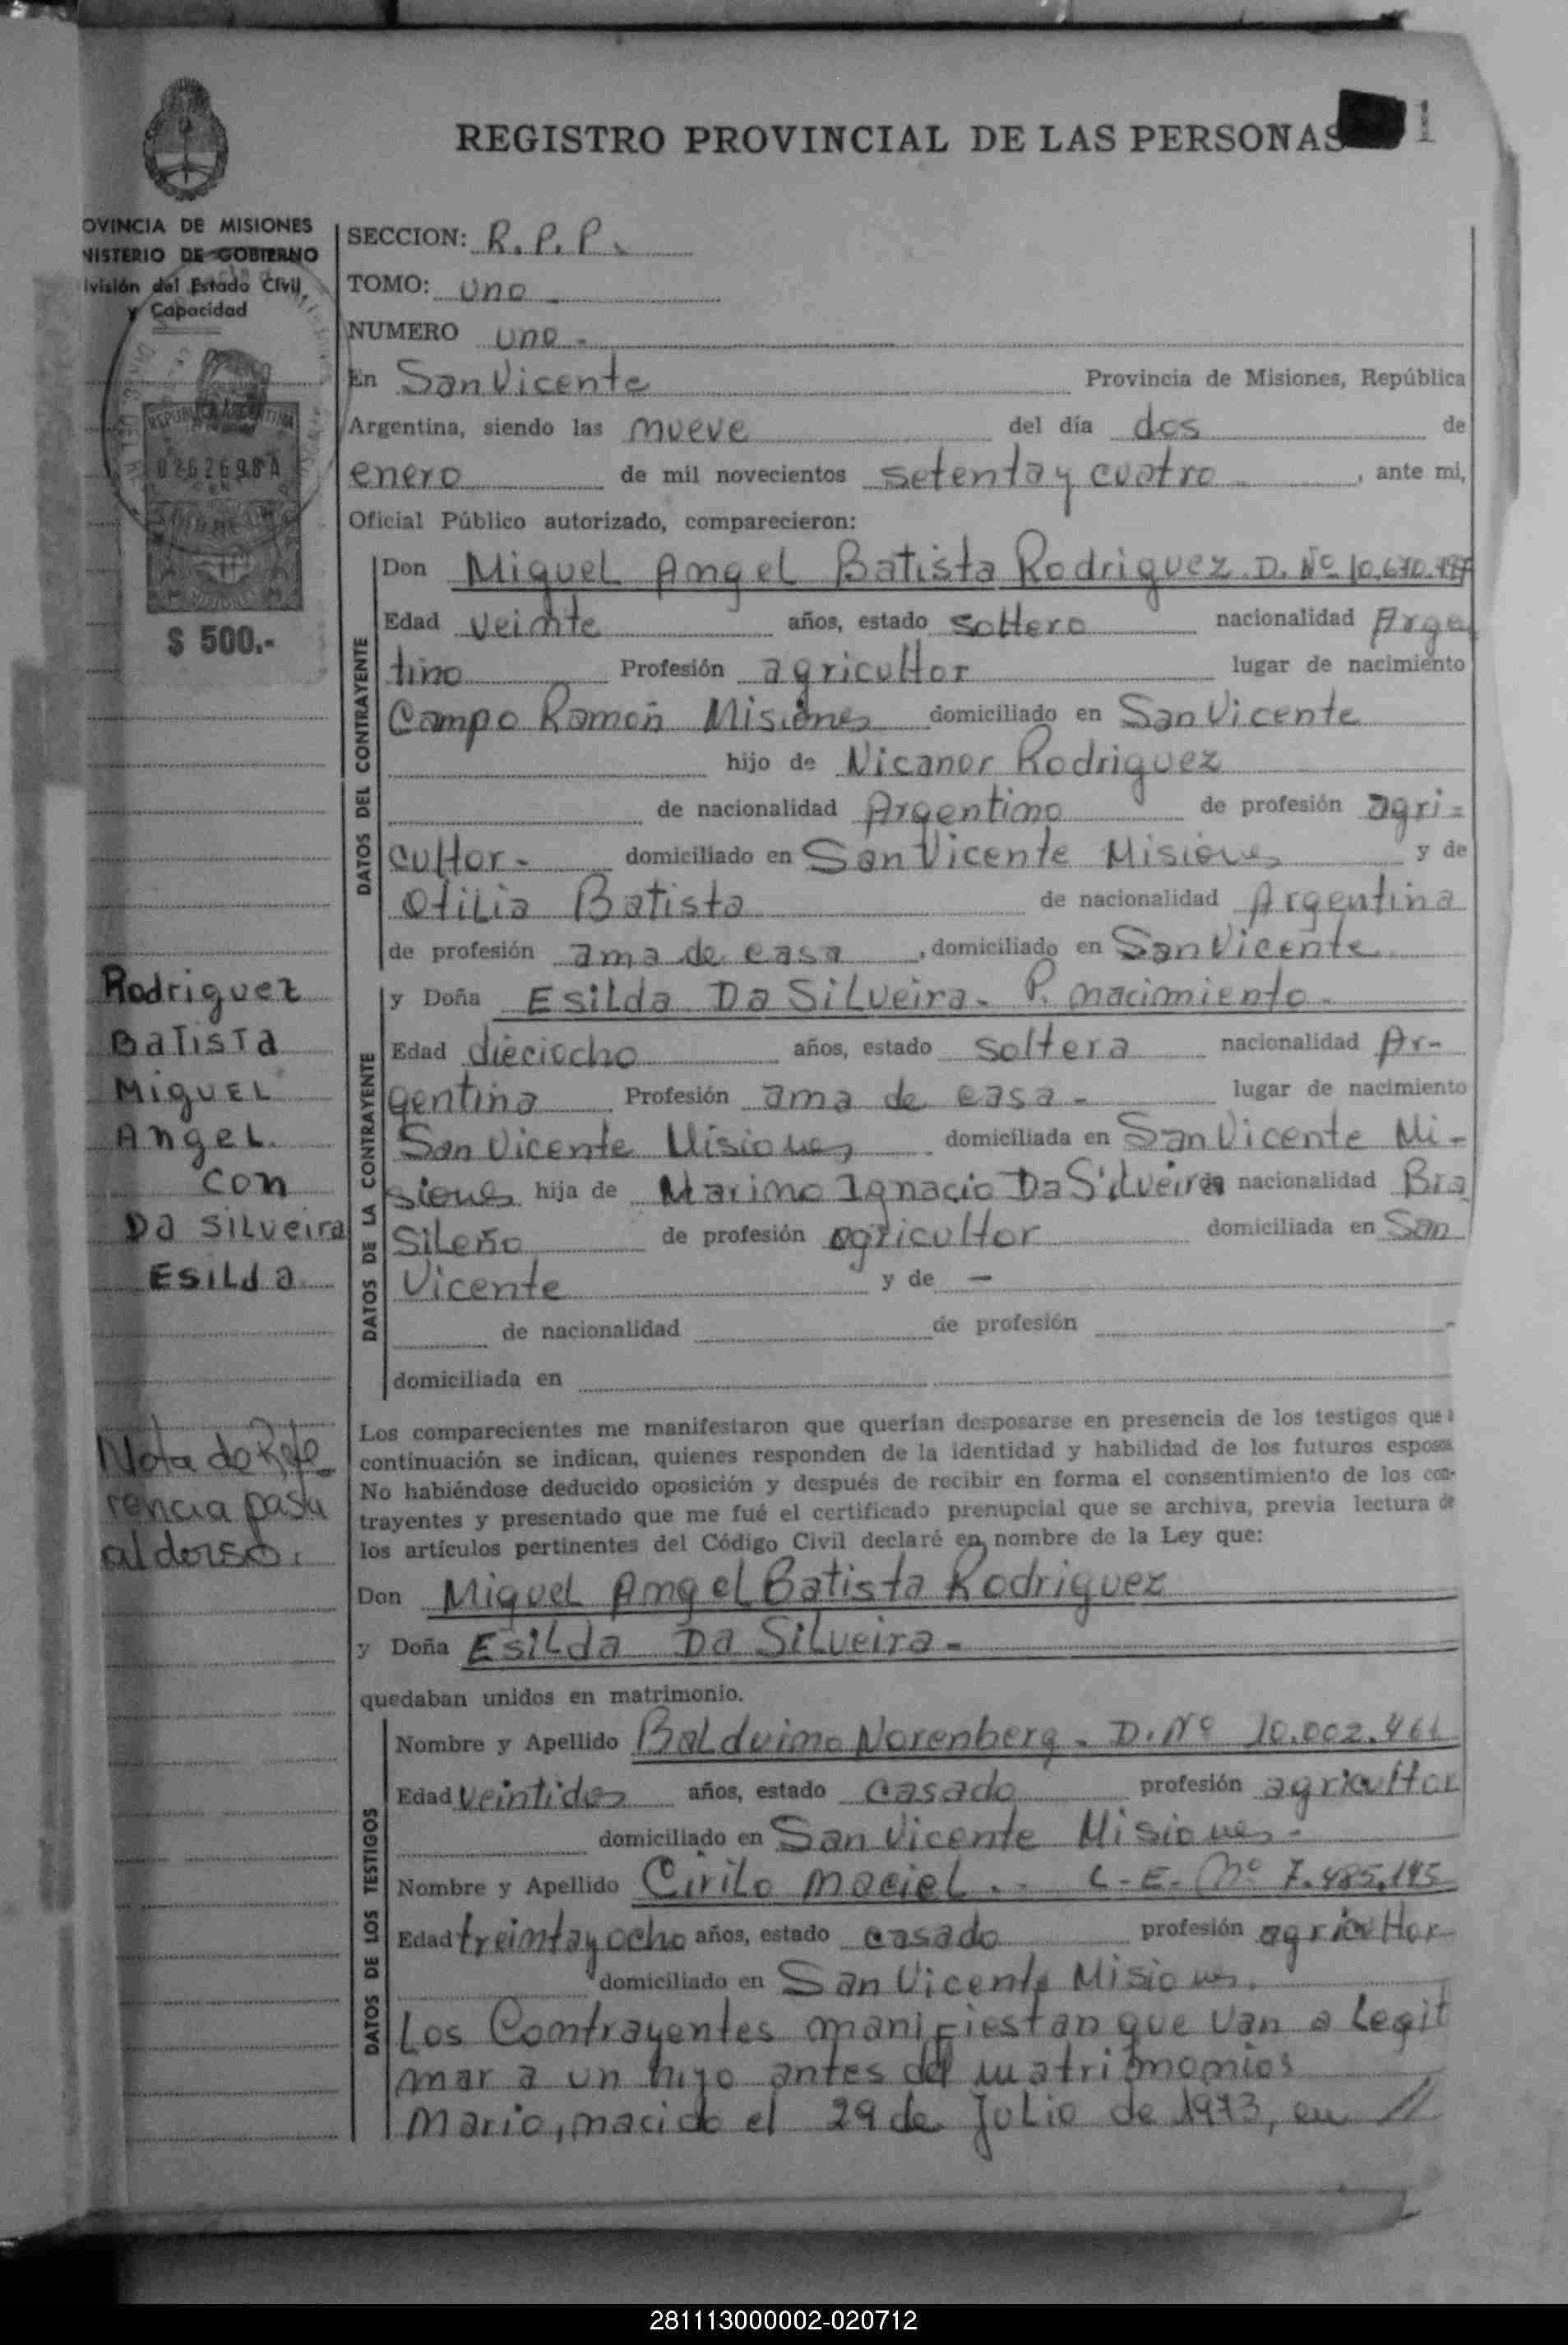 REGISTRO PROVINCIAL DE LAS PERSONAS
1
OVINCIA DE MISIONES
NISTERIO DE GOBIERNO
ivisión del Estado Civil
y Capacidad
REPUBLICA ARGENTINA
0262698A
MISIONES
$ 500.-
SECCION: R.P.P.
TOMO: uno
NUMERO uno.
En San Vicente Provincia de Misiones, República
Argentina, siendo las nueve del día dos de
enero de mil novecientos setenta y cuatro, ante mi,
Oficial Público autorizado, comparecieron:
DATOS DEL CONTRAYENTE
Don Miguel Angel Batista Rodriguez. D. Nº
Edad veinte años, estado soltero nacionalidad Argen
tino Profesión agricultor lugar de nacimiento
Campo Ramon Misiones domiciliado en San Vicente
hijo de Nicanor Rodriguez
de nacionalidad Argentino de profesión agri-
cultor- domiciliado en San Vicente Misiones y de
Otilia Batista de nacionalidad Argentina
de profesión ama de casa, domiciliado en San Vicente
DATOS DE LA CONTRAYENTE
y Doña Esilda Da Silveira- P. nacimiento.
Edad dieciocho años, estado soltera nacionalidad Ar-
gentina Profesión ama de casa- lugar de nacimiento
San Vicente Misiones domiciliada en San Vicente Mi-
siones hija de Marino Ignacio Da Silveira nacionalidad Bra
sileño de profesión agricultor domiciliada en San
Vicente y de —
de nacionalidad de profesión
domiciliada en
Rodriguez
Batista
Miguel
Angel
con
Da Silveira
Esilda
Nota de Refe
rencia pasa
al dorso.
Los comparecientes me manifestaron que querían desposarse en presencia de los testigos que a
continuación se indican, quienes responden de la identidad y habilidad de los futuros esposos
No habiéndose deducido oposición y después de recibir en forma el consentimiento de los con-
trayentes y presentado que me fué el certificado prenupcial que se archiva, previa lectura de
los artículos pertinentes del Código Civil declaré en nombre de la Ley que:
Don Miguel Angel Batista Rodriguez
y Doña Esilda Da Silveira-
quedaban unidos en matrimonio.
DATOS DE LOS TESTIGOS
Nombre y Apellido Balduino Norenberg- D. Nº 10.002.461
Edad veintidos años, estado casado profesión agricultor
domiciliado en San Vicente Misiones-
Nombre y Apellido Cirilo Maciel.- L.E. Nº 7.485.145
Edad treinta y ocho años, estado casado profesión agricultor
domiciliado en San Vicente Misiones.
Los Contrayentes manifiestan que van a legit
mar a un hijo antes del matrimonios
Mario, nacido el 29 de Julio de 1973, en //
281113000002-020712